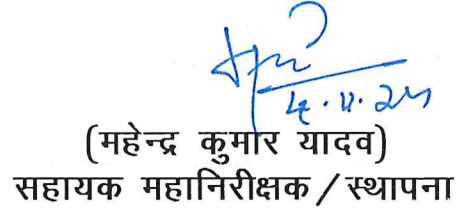 (महेन्द्र कुमार यादव)
सहायक महानिरीक्षक/स्थापना